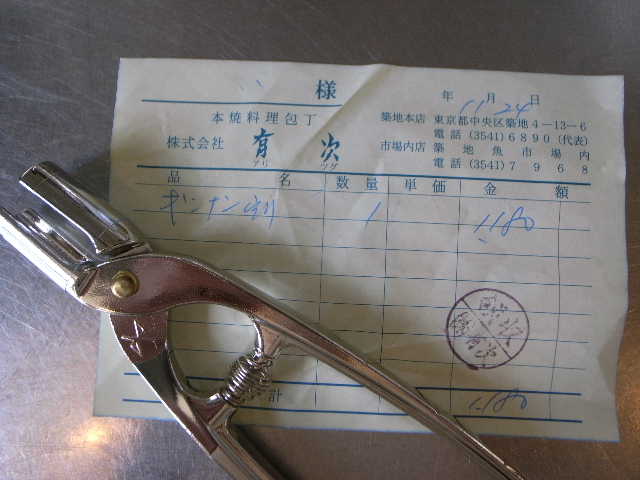 様
年 11月 24日
本焼料理包丁
株式会社 有次
アリ ツグ
築地本店 東京都中央区築地4-13-6
電話(3541)6890(代表)
市場内店 築地魚市場内
電話(3541)7968
品名 数量 単価 金額
ギンナン割 1 1,180
計 1,180